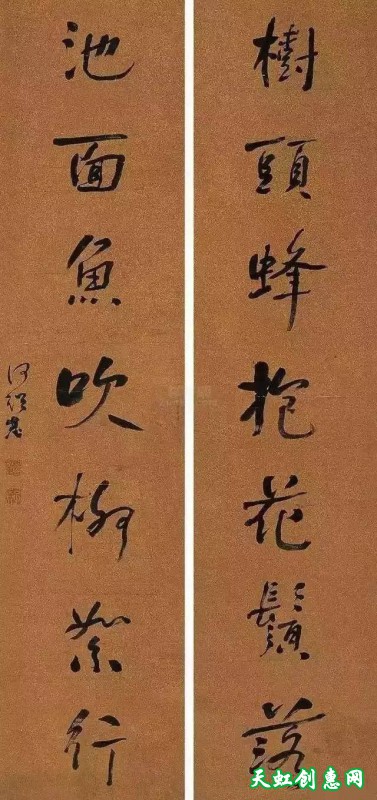 樹頭蜂抱花鬚落
池面魚吹柳絮行
何紹基
天虹创惠网